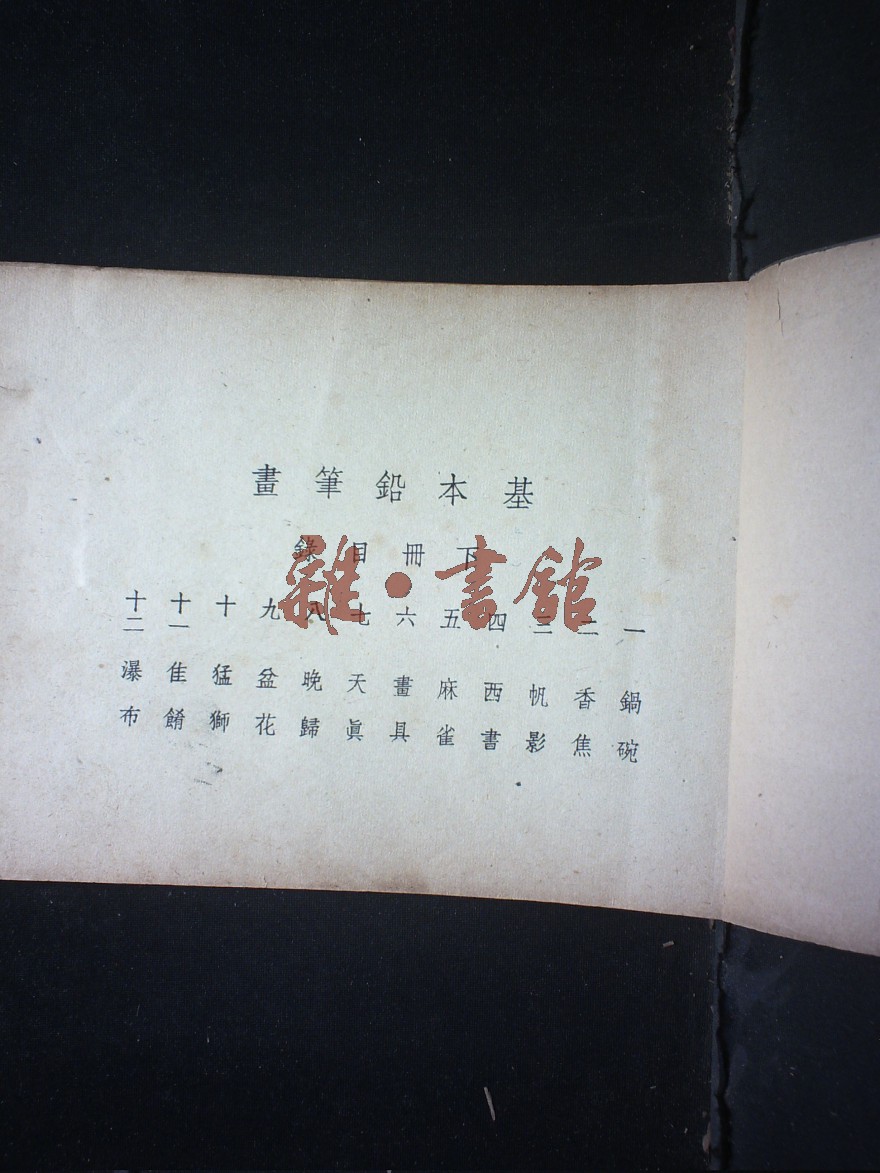 基本鉛筆畫
下冊目錄
一 鍋碗
二 香焦
三 帆影
四 西書
五 麻雀
六 畫具
七 天眞
八 晚歸
九 盆花
十 猛獅
十一 佳餚
十二 瀑布
雜·書館